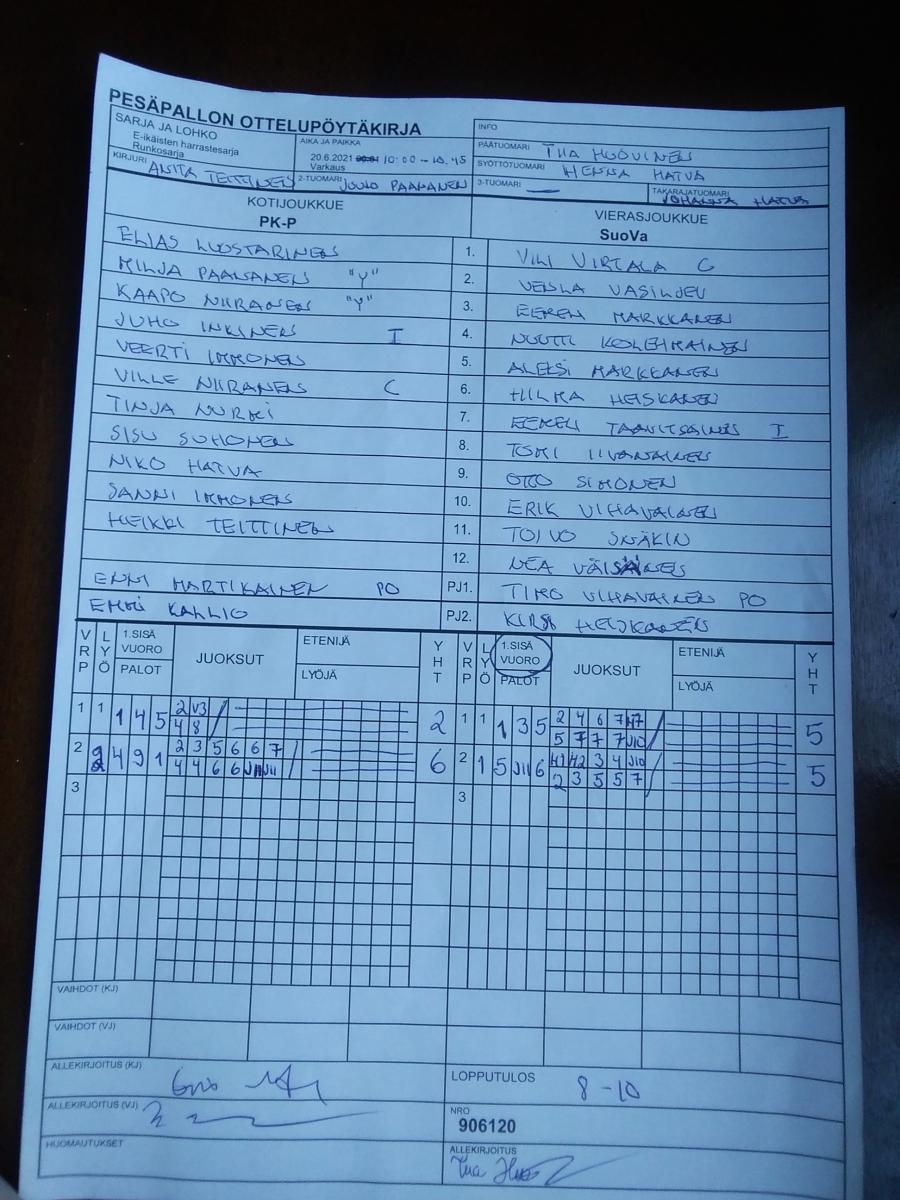 PESÄPALLON OTTELUPÖYTÄKIRJA
SARJA JA LOHKO
E-ikäisten harrastesarja
Runkosarja
AIKA JA PAIKKA
20.6.2021 10:00 - 10.45
Varkaus
INFO
PÄÄTUOMARI TIIA HUOVINEN
SYÖTTÖTUOMARI HENNA HATVA
KIRJURI ANITA TEITTINEN
2-TUOMARI JUUSO PAANANEN
3-TUOMARI —
TAKARAJATUOMARI JOHANNA HATVA
KOTIJOUKKUE
PK-P
VIERASJOUKKUE
SuoVa
ELIAS LUOSTARINEN 1. VILI VIRTALA C
MILJA PAANANEN "Y" 2. VENLA VASILJEV
KAAPO NIIRANEN "Y" 3. EEMEN MARKKANEN
JUHO INKINEN I 4. NUUTTI KOLEHMAINEN
VEERTI IMMONEN 5. ALEKSI MARKKANEN
VILLE NIIRANEN C 6. HILMA HEISKANEN
TINJA NURMI 7. EEMELI TAAVITSAINEN I
SISU SUHONEN 8. TOMI IIVANAINEN
NIKO HATVA 9. OTTO SIMONEN
SANNI IMMONEN 10. ERIK VIHAVAINEN
HEIKKI TEITTINEN 11. TOIVO SNÄKIN
12. NEA VÄISÄNEN
ENNI MARTIKAINEN PO PJ1. TIMO VIHAVAINEN PO
EMMI KALLIO PJ2. KIRSI HEISKANEN
VRP LYÖ 1.SISÄ VUORO PALOT JUOKSUT ETENIJÄ LYÖJÄ YHT VRP LYÖ 1.SISÄ VUORO PALOT JUOKSUT ETENIJÄ LYÖJÄ YHT
1 1 1 4 5 2 V3 / 2 1 1 1 3 5 2 4 6 7 H7 / 5
4 8 5 7 7 7 J10
2 2 4 9 1 2 3 5 6 6 7 / 6 2 1 5 J11 6 H1 H2 3 4 J10 / 5
4 4 6 6 J11 J11 2 3 5 5 7
3 3
VAIHDOT (KJ)
VAIHDOT (VJ)
ALLEKIRJOITUS (KJ)
LOPPUTULOS 8 - 10
ALLEKIRJOITUS (VJ)
NRO
906120
HUOMAUTUKSET
ALLEKIRJOITUS